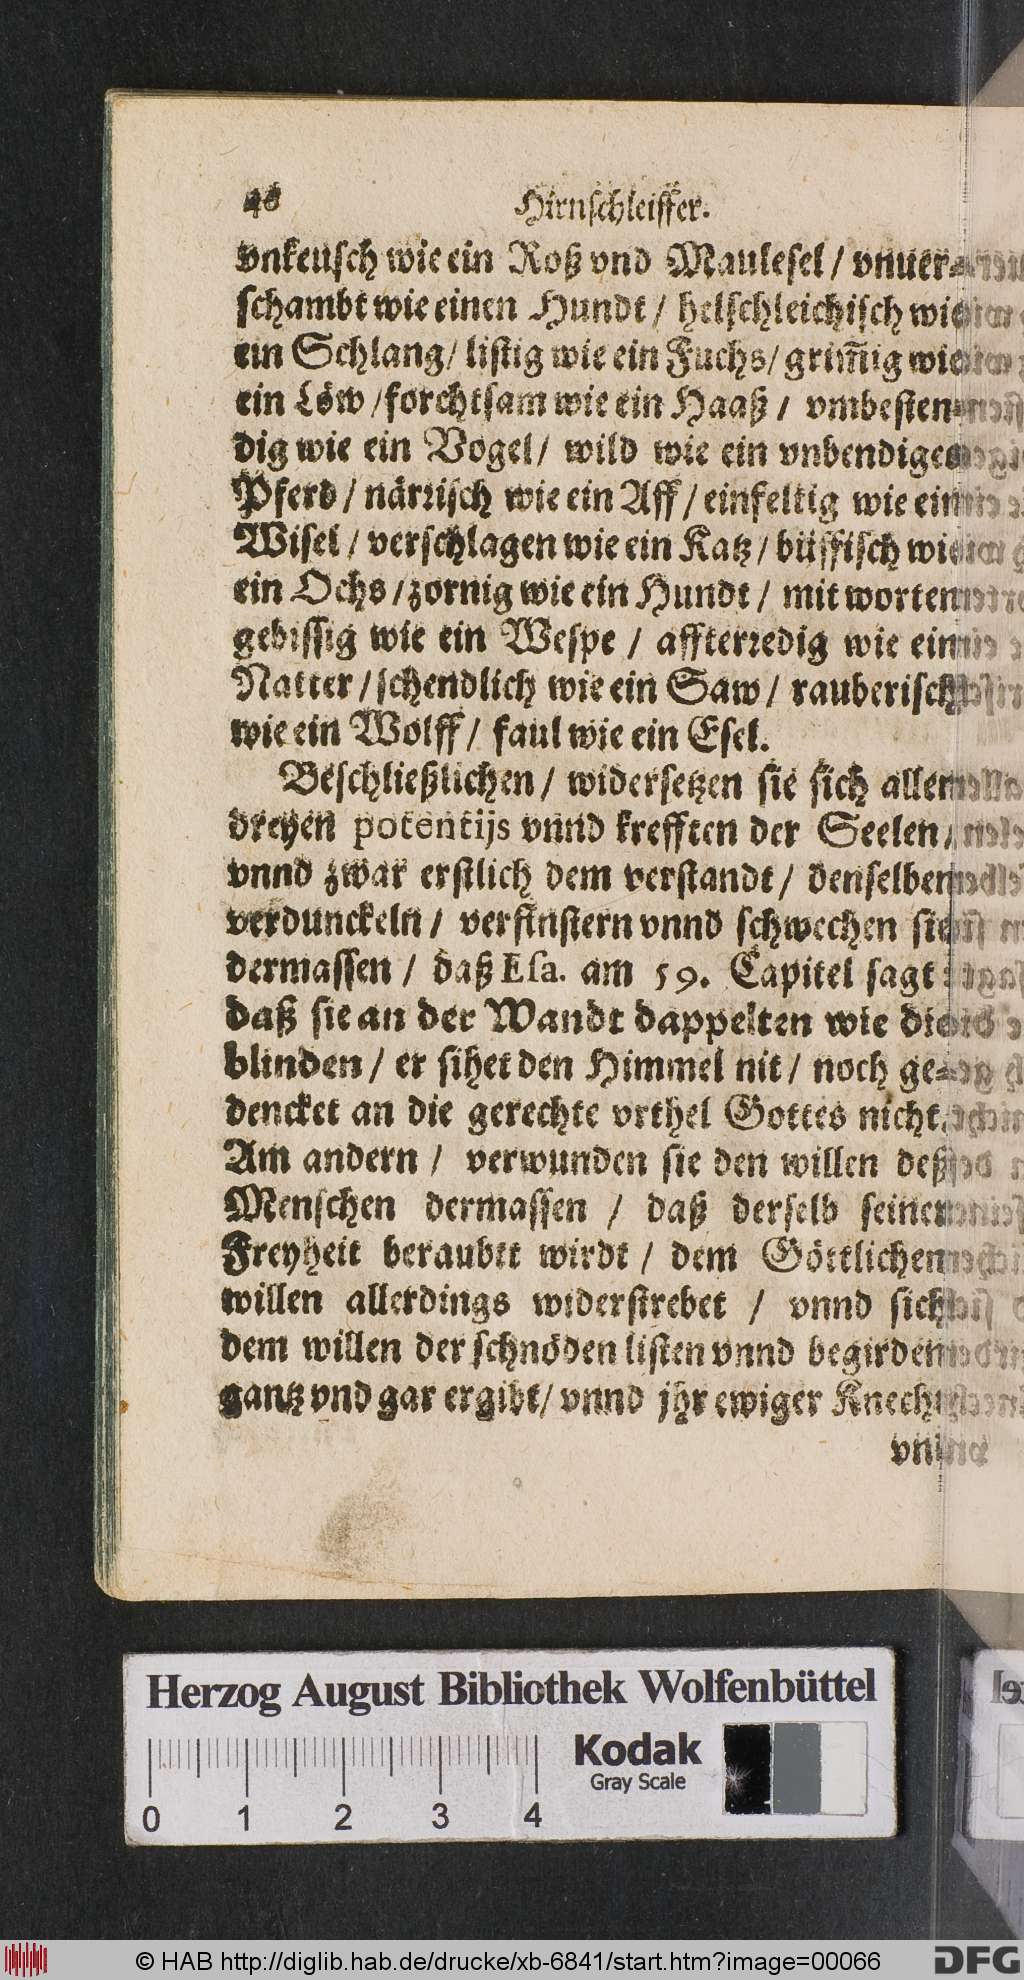 48 Hirnschleiffer.
vnkeusch wie ein Roß vnd Maulesel / vnuer-
schambt wie einen Hundt / helschleichisch wie
ein Schlang / listig wie ein Fuchs / grim̃ig wie
ein Löw / forchtsam wie ein Haaß / vmbesten-
dig wie ein Vogel / wild wie ein vnbendiges
Pferd / närrisch wie ein Aff / einfeltig wie ein
Wisel / verschlagen wie ein Katz / büffisch wie
ein Ochs / zornig wie ein Hundt / mit worten
gebissig wie ein Wespe / affterredig wie ein
Natter / schendlich wie ein Saw / rauberisch
wie ein Wolff / faul wie ein Esel.
Beschließlichen / widersetzen sie sich allen
dreyen potentijs vnnd krefften der Seelen /
vnnd zwar erstlich dem verstandt / denselben
verdunckeln / verfinstern vnnd schwechen sie
dermassen / daß Esa. am 59. Capitel sagt:
daß sie an der Wandt dappelten wie die
blinden / er sihet den Himmel nit / noch ge-
dencket an die gerechte vrthel Gottes nicht.
Am andern / verwunden sie den willen deß
Menschen dermassen / daß derselb seiner
Freyheit beraubtt wirdt / dem Göttlichen
willen allerdings widerstrebet / vnnd sich
dem willen der schnöden listen vnnd begirden
gantz vnd gar ergibt / vnnd jhr ewiger Knecht
Herzog August Bibliothek Wolfenbüttel
0 1 2 3 4
Kodak
Gray Scale
© HAB http://diglib.hab.de/drucke/xb-6841/start.htm?image=00066
DFG